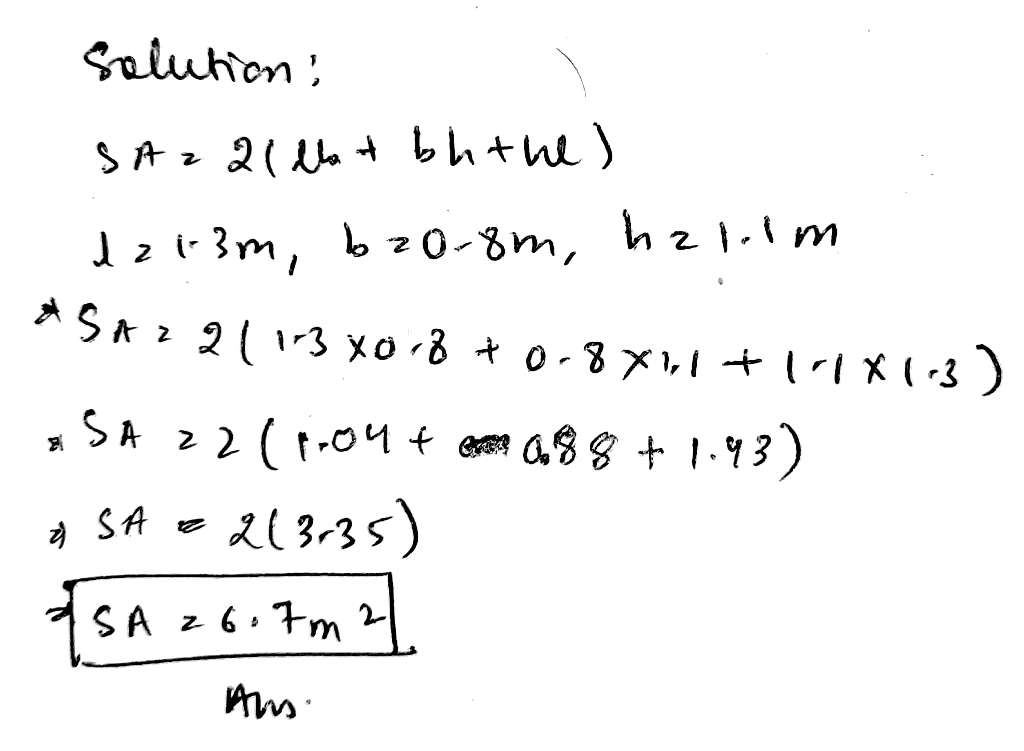 Solution:
SA = 2(lb + bh + hl)
l = 1.3m, b = 0.8m, h = 1.1m
⇒ SA = 2(1.3 × 0.8 + 0.8 × 1.1 + 1.1 × 1.3)
⇒ SA = 2(1.04 + 0.88 + 1.43)
⇒ SA = 2(3.35)
⇒ SA = 6.7m²
Ans.